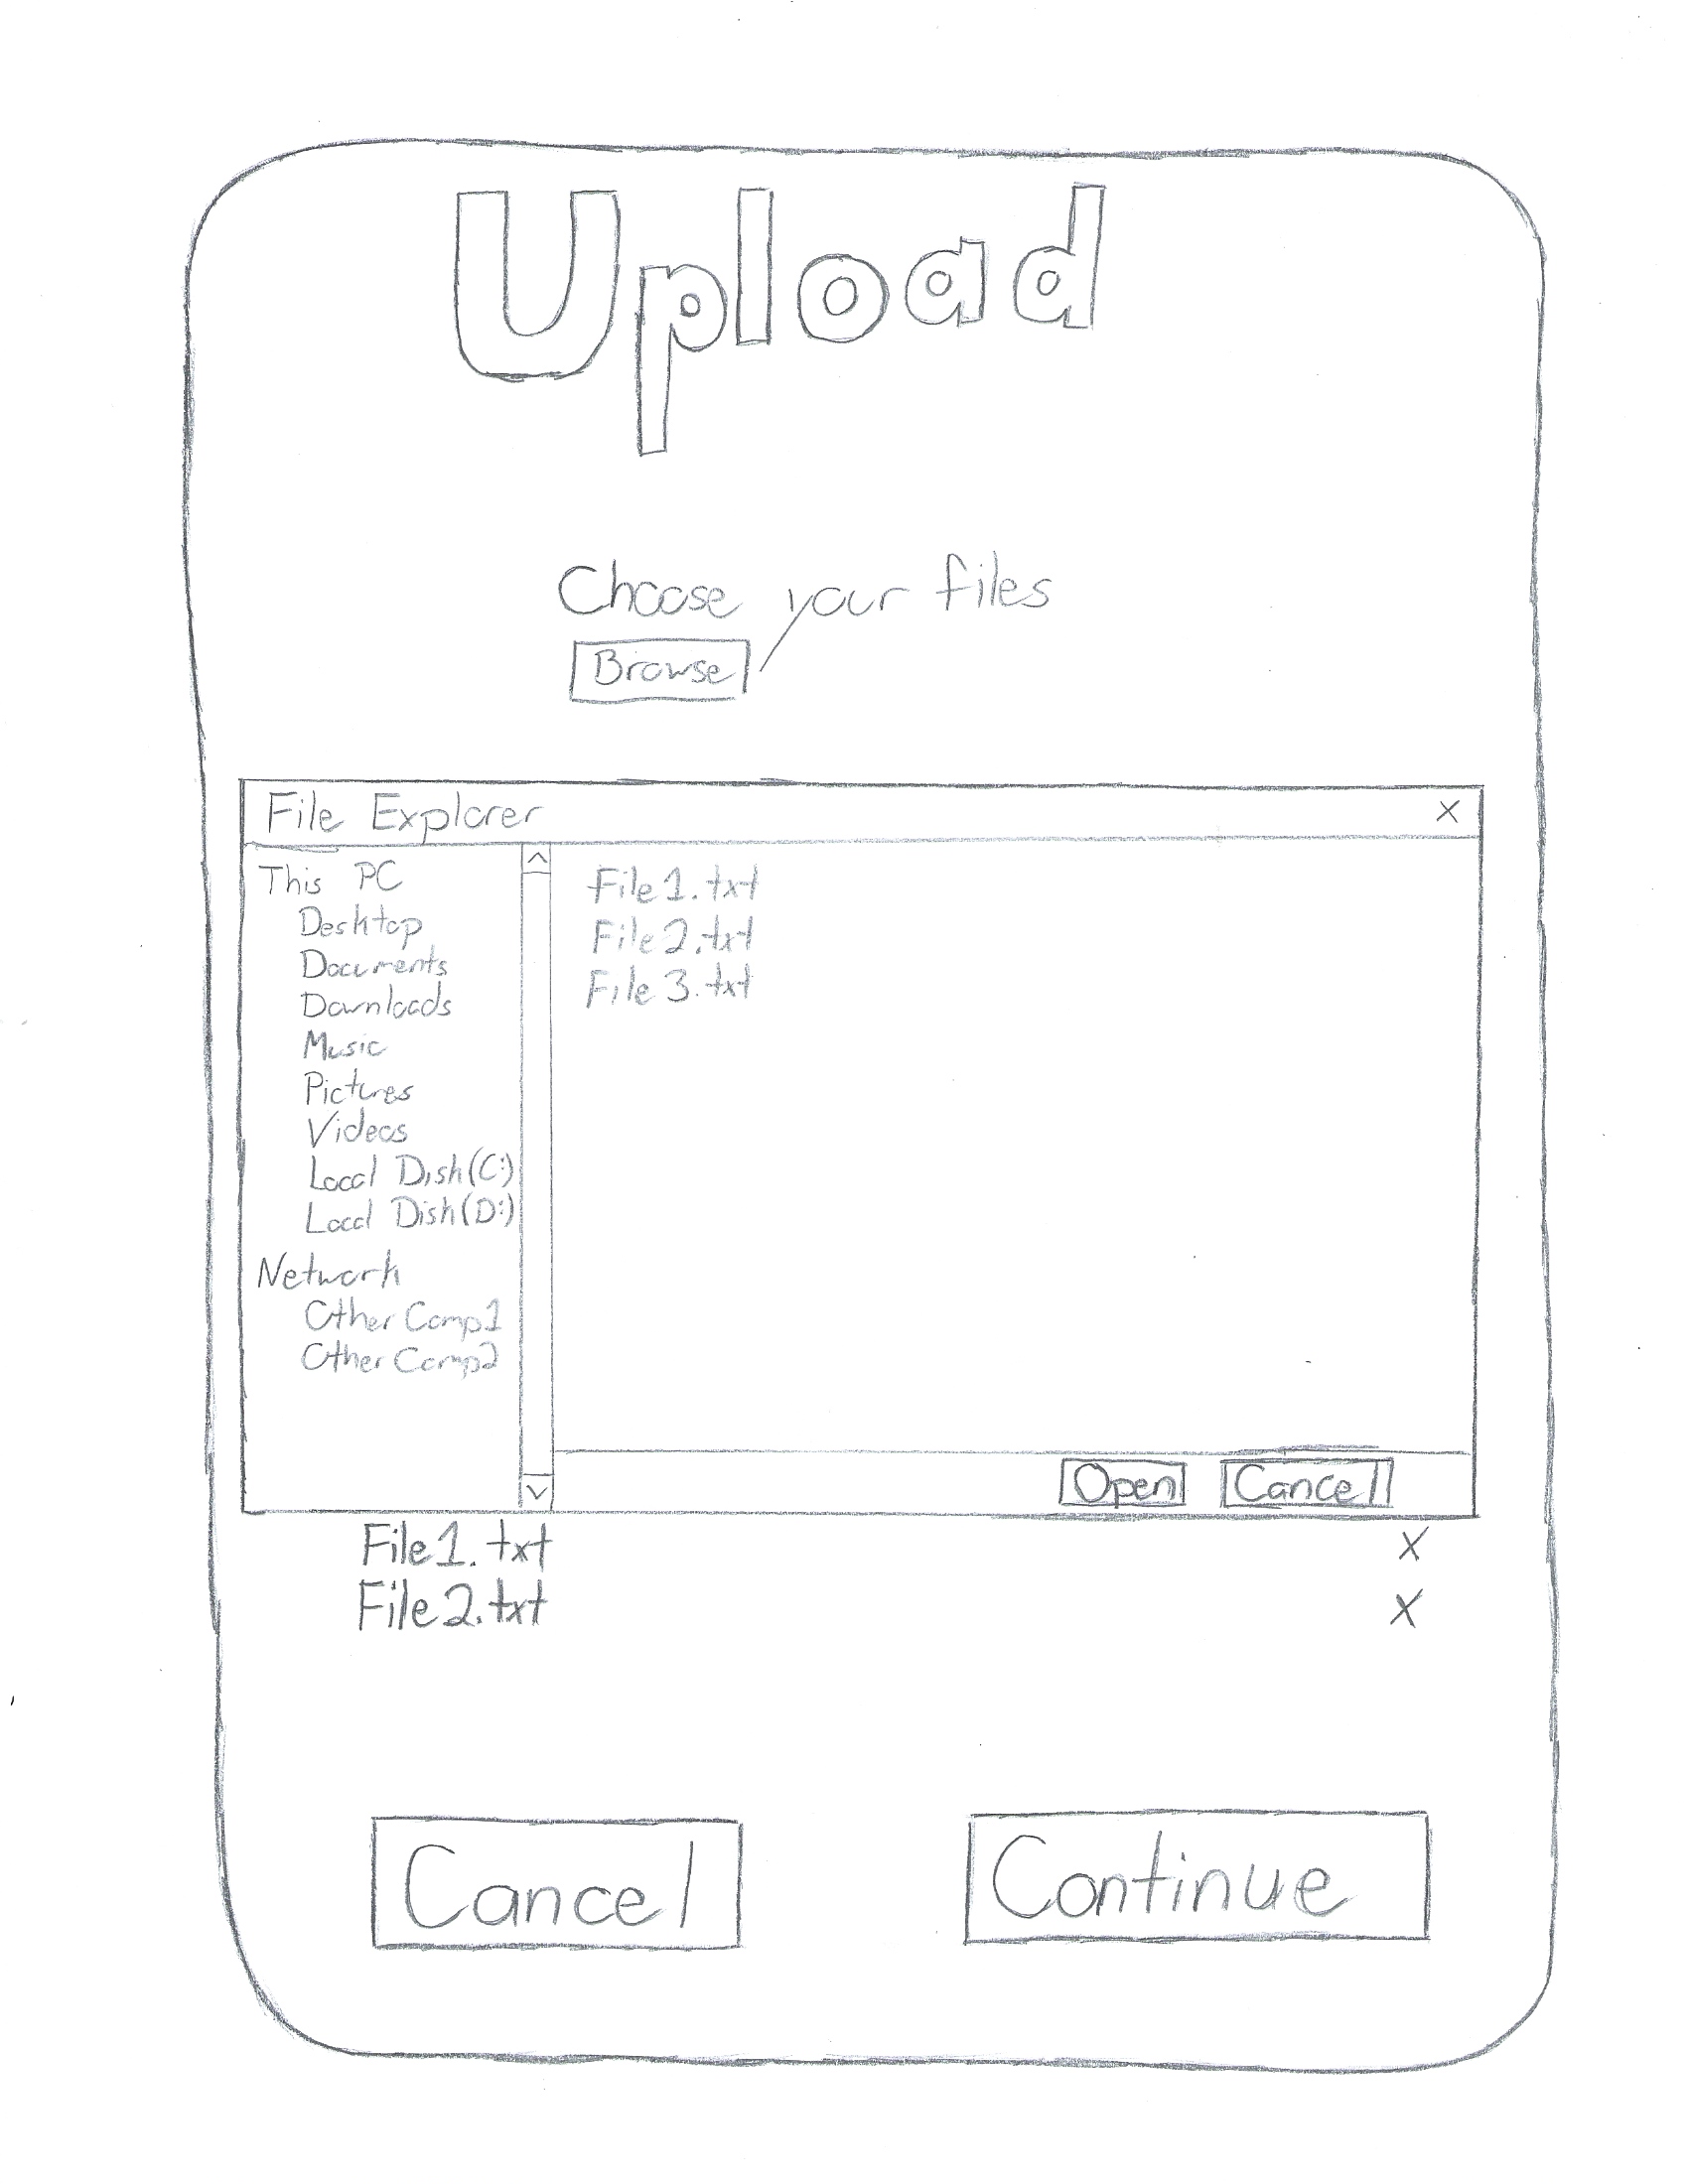 Upload
Choose your files
Browse
File Explorer X
This PC
Desktop
Documents
Downloads
Music
Pictures
Videos
Local Dish(C:)
Local Dish(D:)
Network
Other Comp1
Other Comp2
File1.txt
File2.txt
File3.txt
Open Cancel
File1.txt X
File2.txt X
Cancel Continue